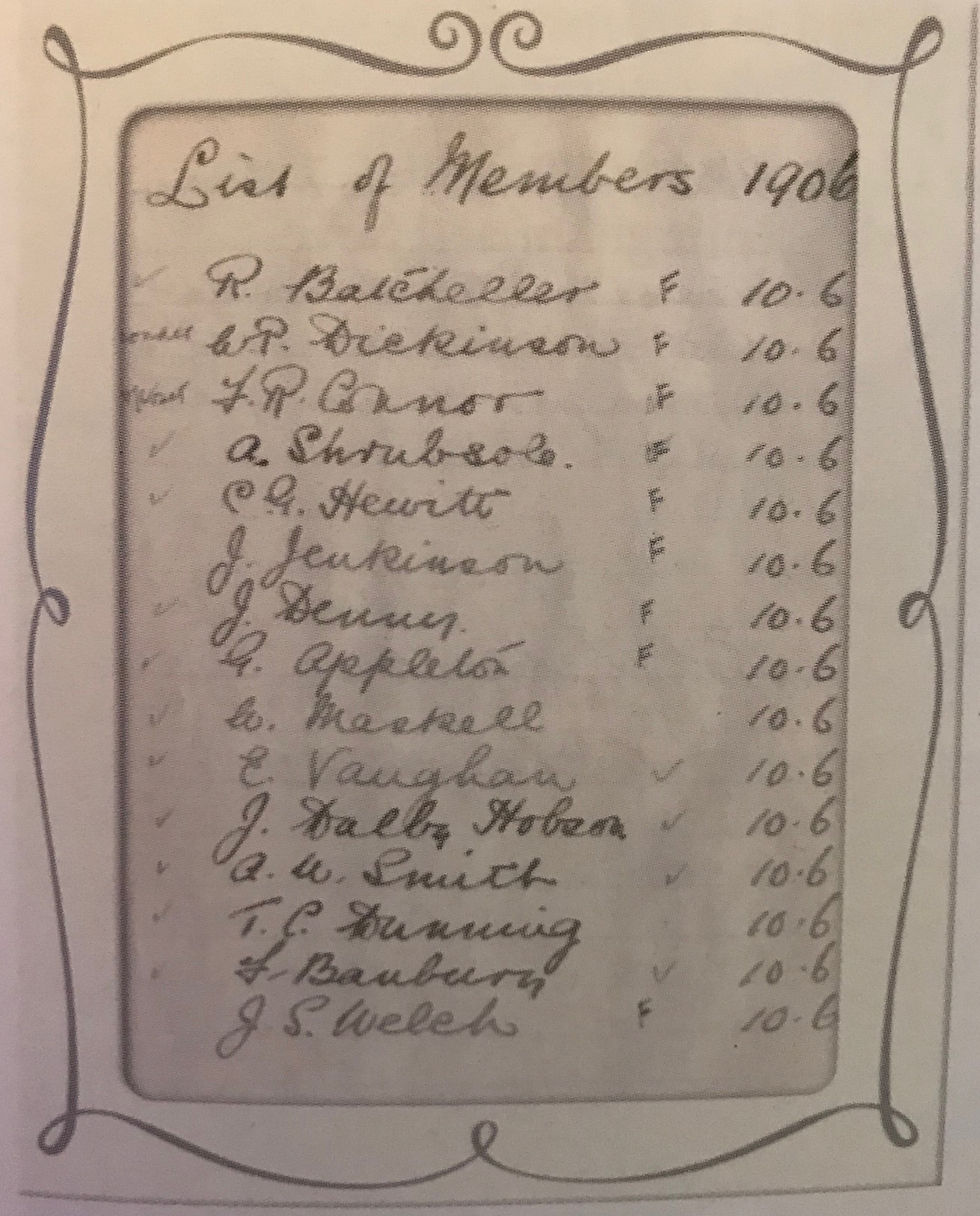 List of Members 1906
✓ R. Batcheller F 10.6
W.P. Dickinson F 10.6
F.R. Connor F 10.6
✓ A. Shrubsole. F 10.6
✓ C.G. Hewitt F 10.6
J. Jenkinson F 10.6
✓ J. Denny. F 10.6
✓ G. Appleton F 10.6
✓ W. Maskell 10.6
✓ E. Vaughan ✓ 10.6
✓ J. Dalby Hobson ✓ 10.6
✓ A. W. Smith ✓ 10.6
✓ T. C. Dunning 10.6
✓ F. Banbury ✓ 10.6
J. S. Welch F 10.6